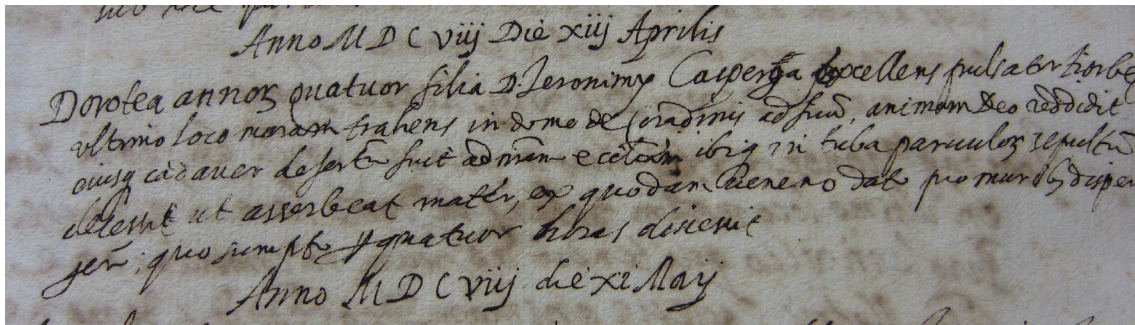 Anno MDCviij Die xiij Aprilis
Dorotea annoꝝ quatuor filia D. Jeronimi Casperga excellens pulsator tiorbe
ultimo loco moram trahens in domo de Coradinis ad ficũ, animam Deo reddidit
eiusq cadaver desertũ fuit ad nr̃am eccłiam ibiq in tuba paruuloꝝ sepultũ
decessit ut asserbeat mater, ex quodam veneno dato pro muribꝫ disper
quo sumpto quatuor horas
Anno MDCviij die xi Maij